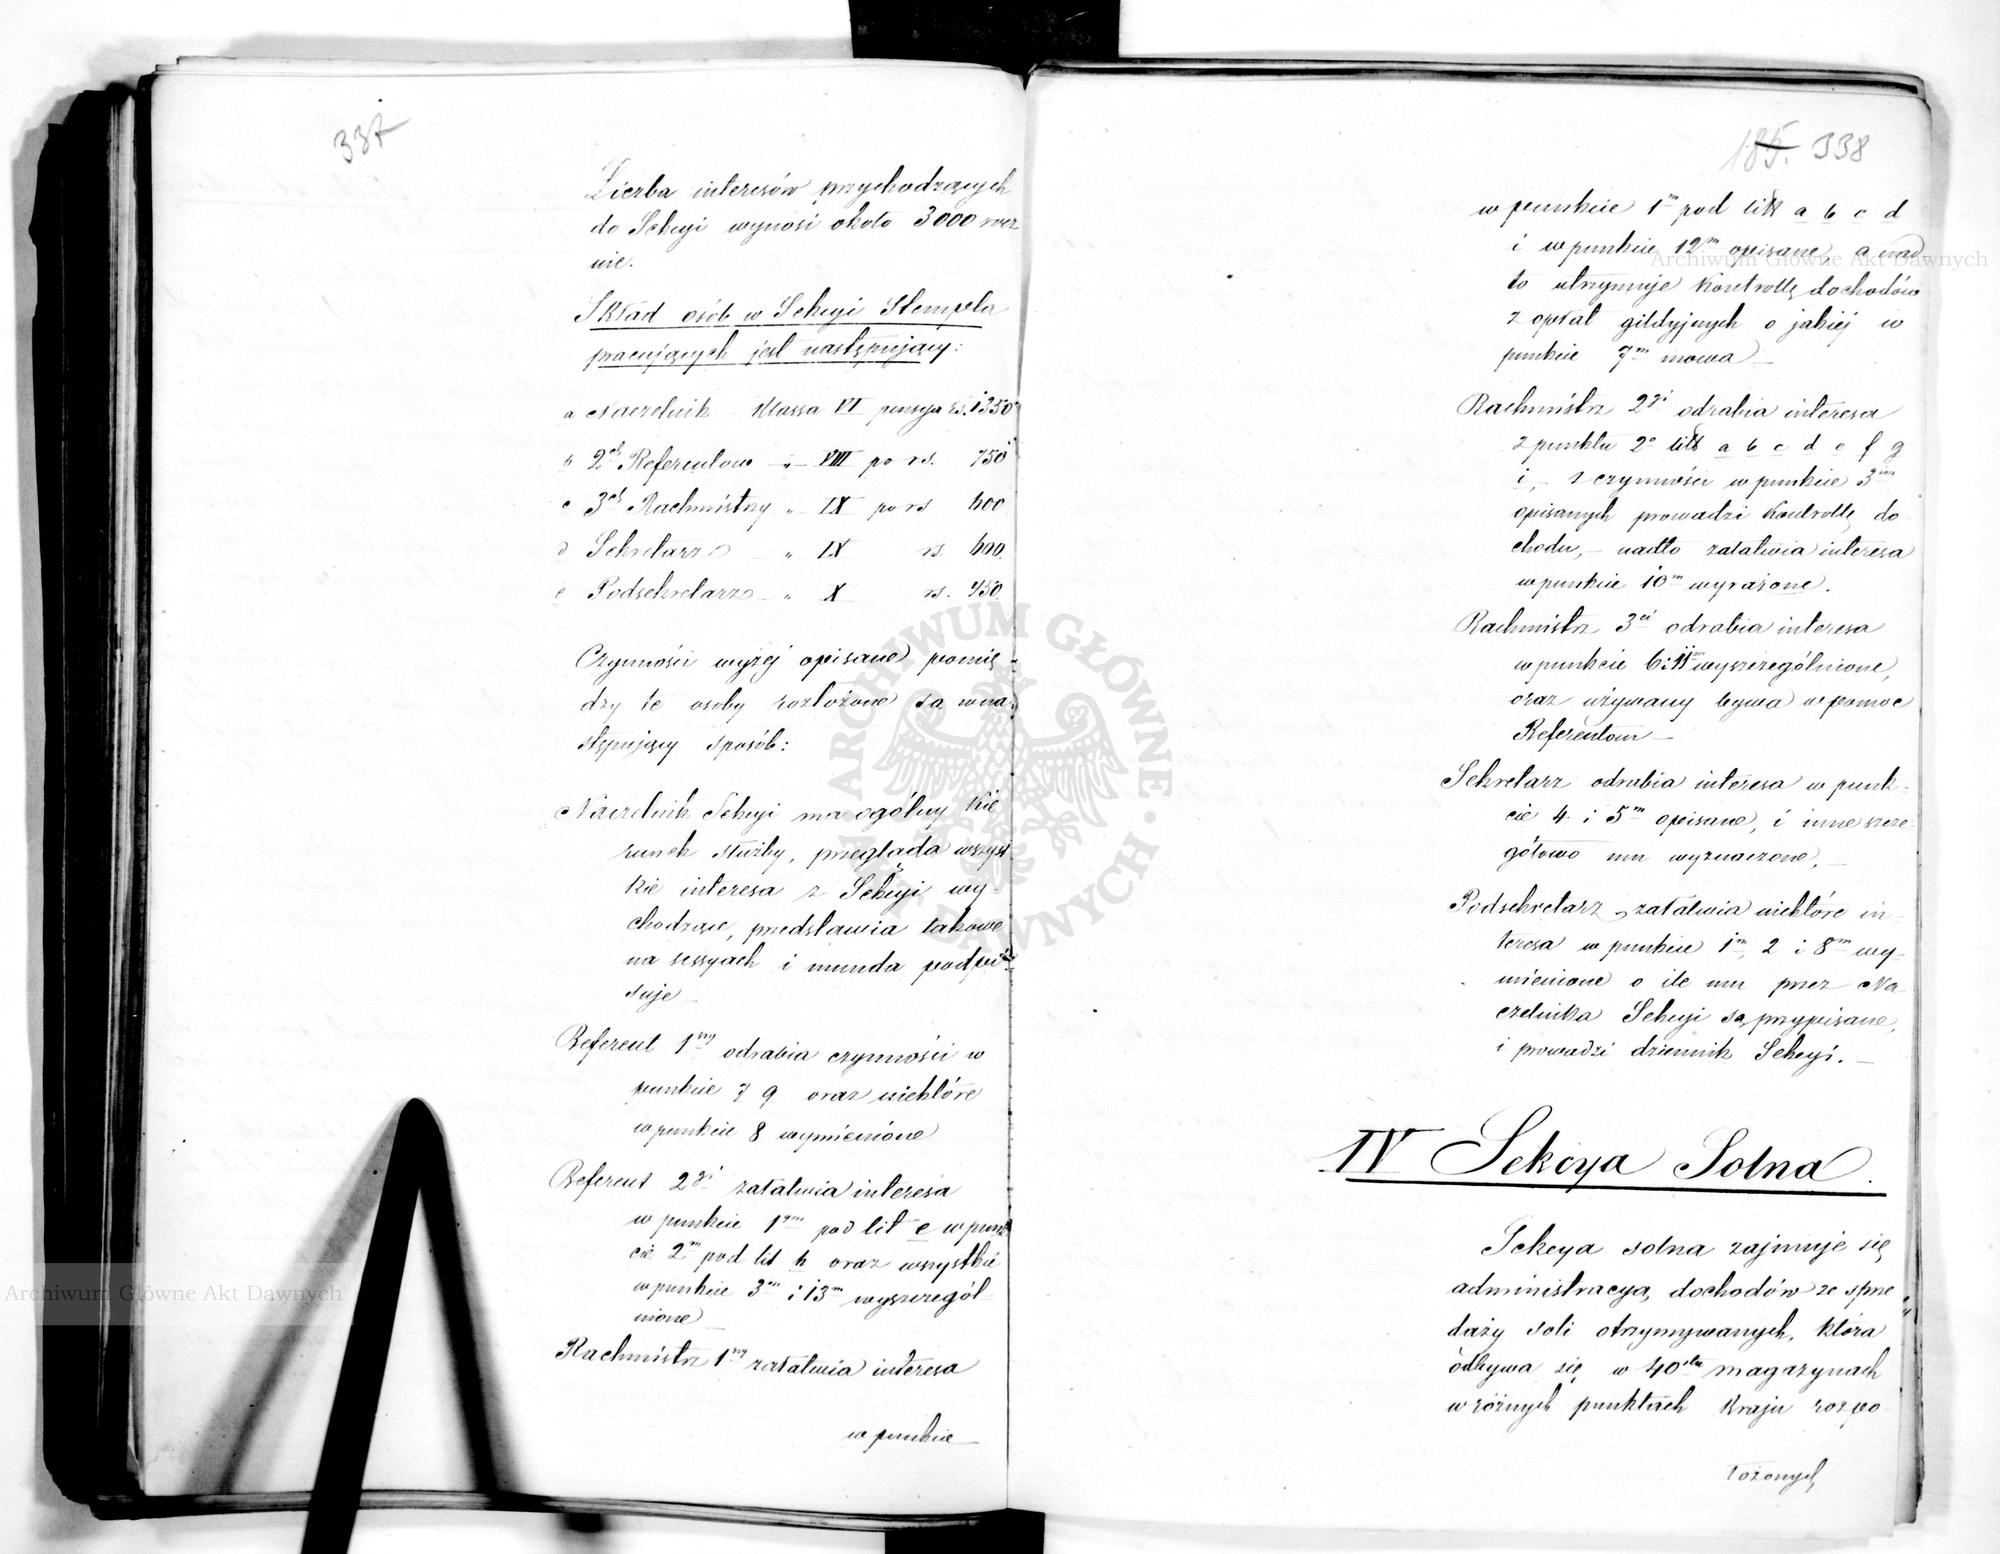 337
Liczba interesów przychodzących
do Sekcyi wynosi około 3000 rocz
nie.
Skład osób w Sekcyi Stempla
pracujących jest następujący:
a Naczelnik Klassa VI pensya rs. 1350
b 2ch Referentów " VIII po rs. 750
c 3ch Rachmistrzy " IX po rs 600
d Sekretarz " IX rs. 600.
e Podsekretarz " X rs. 450.
Czynności wyżej opisane pomię
dzy te osoby rozłożone są w na
stępujący sposób:
Naczelnik Sekcyi ma ogólny kie
runek służby, przegląda wszyst
kie interesa z Sekcyi wy-
chodzące, przedstawia takowe
na sessyach i munda podpi
suje
Referent 1wszy odrabia czynności w
punkcie 7 9 oraz niektóre
w punkcie 8 wymienione
Referent 2gi załatwia interesa
w punkcie 1ym pod lit e w punk
cie 2m pod lit h oraz wszystkie
w punkcie 3em i 13m wyszczegól-
nione
Rachmistrz 1wszy załatwia interesa
w punkcie
185. 338
w punkcie 1m pod litt a b c d
i w punkcie 12m opisane, a nad
to utrzymuje Kontrollę dochodów
z opłat gildyjnych o jakiej w
punkcie 7m mowa
Rachmistrz 2gi odrabia interesa
z punktu 2o litt a b c d e f g
i, - z czynności w punkcie 3im
opisanych prowadzi Kontrollę do
chodu, - nadto załatwia interesa
w punkcie 10m wyrażone.
Rachmistrz 3ci odrabia interesa
w punkcie 6 i 11m wyszczególnione,
oraz używany bywa w pomoc
Referentom -
Sekretarz odrabia interesa w punk-
cie 4. i 5m opisane, i inne szcze-
gółowo mu wyznaczone, -
Podsekretarz załatwia niektóre in-
teresa w punkcie 1m, 2 i 8m wy-
mienione o ile mu przez Na
czelnika Sekcyi są przypisane,
i prowadzi dziennik Sekcyi. -
IV Sekcya Solna.
Sekcya solna zajmuje się
administracyą dochodów ze sprze
daży soli otrzymywanych, która
odbywa się w 40stu magazynach
w różnych punktach Kraju rozpo-
łożonych
Archiwum Główne Akt Dawnych
Archiwum Główne Akt Dawnych
ARCHIWUM GŁÓWNE AKT DAWNYCH